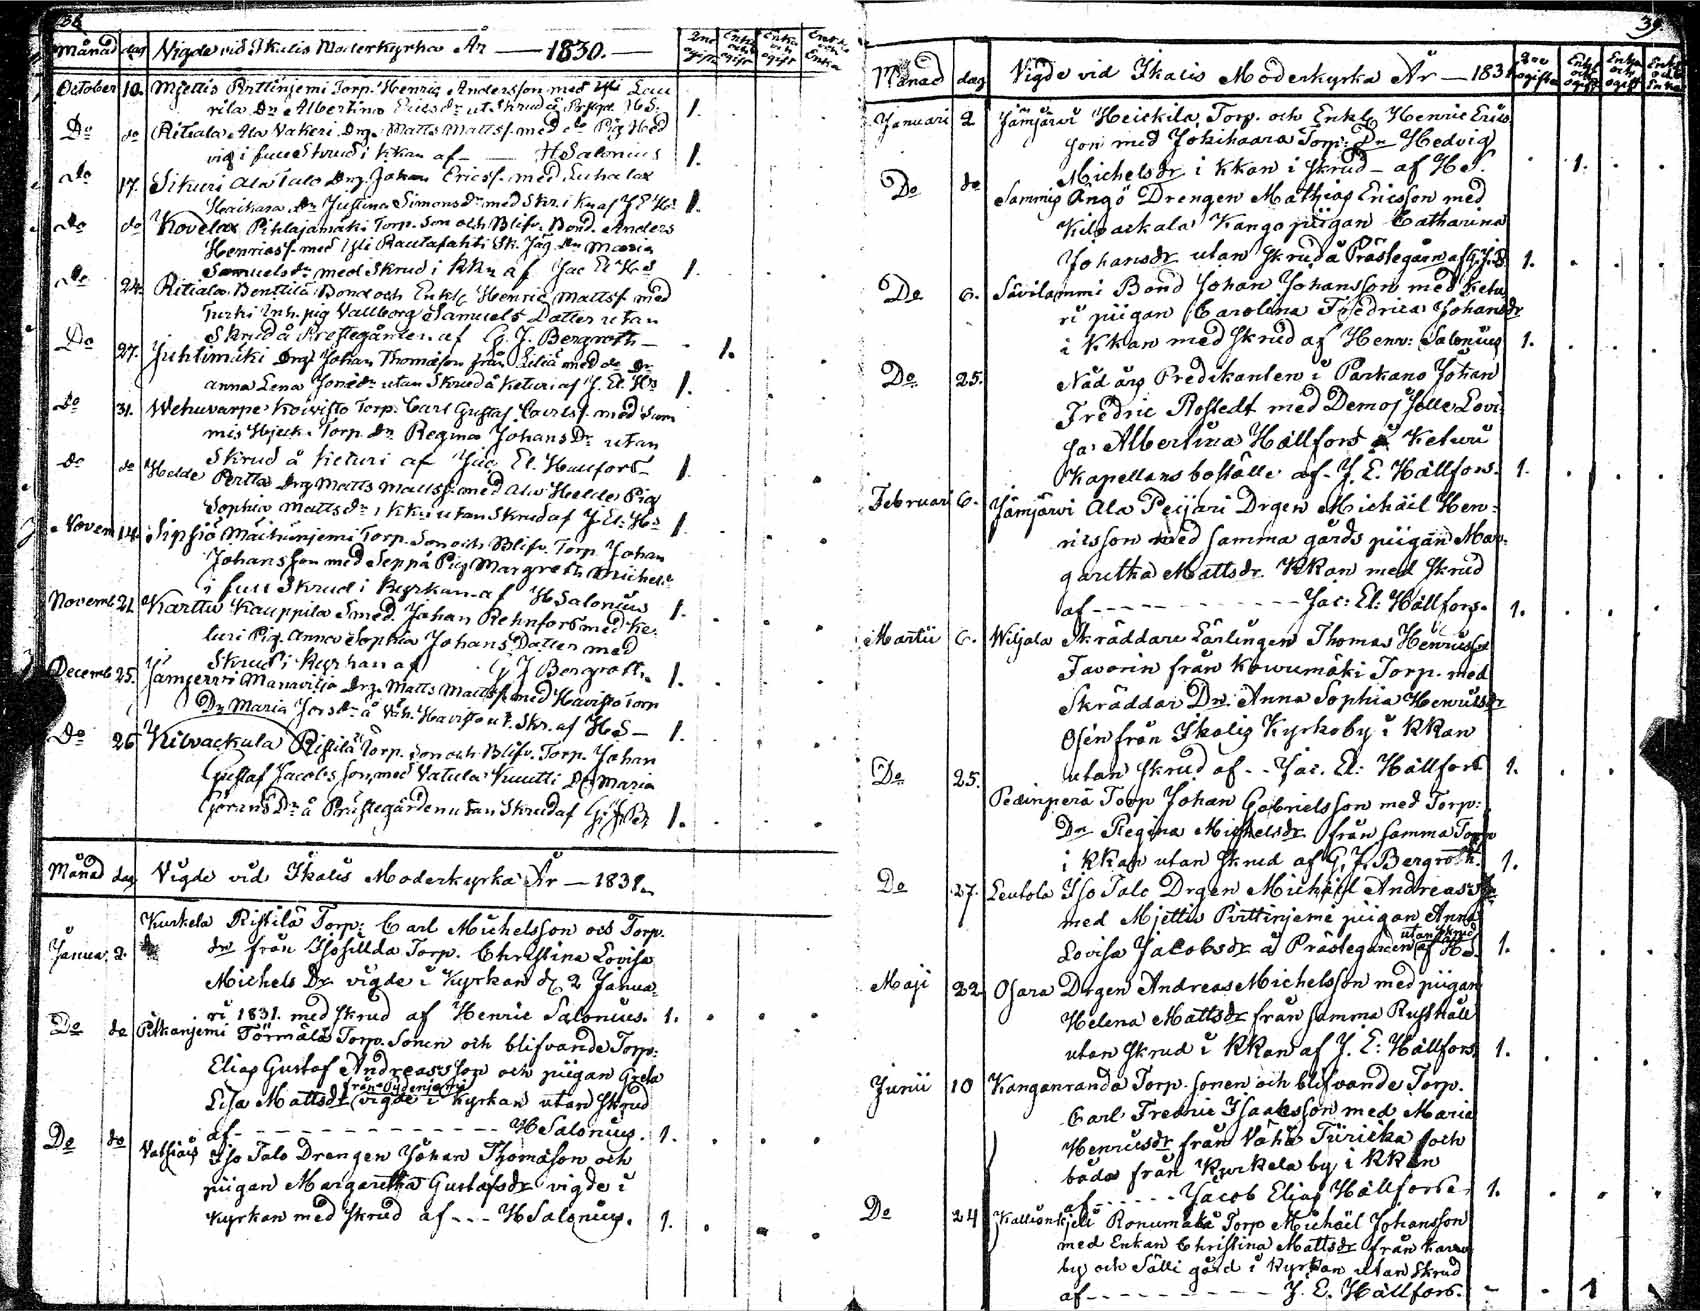 38
Månad dag Vigde vid Ikalis Moderkyrka År — 1830. — Enkl. och ogift Enka och ogift Enkl. och Enka
October 10. Mjettis Pirttinjemi Torp. Henric Andersson med
rila Dr Albertina Ericsdr ut. Skrud å Prgd. HS. 1.
Do do Ritiala Ala Vakeri Drg. Matts Mattss. med do Pig Hed
vig i full Skrud i kkan af — HSalonius 1.
do 17. Sikuri Ala Talo Drg. Johan Ericss. med
Dr Justina Simonsdr med Skr. i kn af J E Hs 1.
do do Kovelax Pihlajamäki Torp. Son och Blifv. Bond. Anders
Henricss. med Rautalahti Sk. Jäg. Dr Maria
Samuelsdr med Skrud i kkn af Jac El Hs 1.
do 24. Ritiala Benttilä Bond och Enkl. Henric Mattss. med
Turki Inh. pig Vallborg Samuels Dotter utan
Skrud å Prestegården af G. J. Bergroth — 1.
Do 27. Juhtimäki Drg Johan Thomasson från Liliä med do Dr
Anna Lena Jonsdr utan Skrud å Keturi af J. El. Hs 1.
Do 31. Wehuvarpe Koivisto Torp. Carl Gustaf Carlss. med Sam
mis Torp. Dr Regina Johans Dr utan
Skrud å Keturi af Jac. El. Hällfors 1.
do do Helde Perttu Drg Matts Mattss. med Ala Helde Pig
Sophia Mattsdr i kk: utan Skrud af J. El. Hs 1.
Novem 14. Sipsiö Torp. Son och Blifv. Torp. Johan
Johansson med Seppä Pig Margreth Michels.
i full Skrud i Kyrkan af HSalonius 1.
Novemb. 21. Karttu Kauppila Smed. Johan Rehnfors med Ke-
turi Pig. Anna Sophia Johans Dotter med
Skrud i Kyrkan af G J Bergroth 1.
Decemb 25. Jämjervi Manavilja Drg. Matts Mattss. med Havisto Torp
Dr Maria å Havisto ut. Skr. af HS — 1.
Do 26 Kilvackala Ristilä Torp. Son och Blifv. Torp. Johan
Gustaf Jacobsson, med Vatula Knutti Dr Maria
Göransdr å Prästegården utan Skrud af 1.
Månad dag Vigde vid Ikalis Moderkyrka År — 1831.
Janua. 2. Kurkela Ristilä Torp: Carl Michelsson och Torp.
dr från Torp. Christina Lovisa
Michels Dr vigde i Kyrkan d. 2 Janua-
ri 1831. med Skrud af Henric Salonius. 1.
Do do Pitkänjemi Törmälä Torp. Sonen och blifvande Torp:
Elias Gustaf Andreasson och piigan Greta
Lisa Mattsdr vigde i Kyrkan utan Skrud
af — HSalonius. 1.
Do do Vatsiais Iso Talo Drengen Johan Thomason och
piigan Margaretha Gustafsdr vigde i
Kyrkan med Skrud af — HSalonius. 1.
39
Månad dag Vigde vid Ikalis Moderkyrka År — 1831 Enkl. och ogift Enka och ogift Enkl. och Enka
Januari 2 Jämjärvi Heickilä Torp. och Enkl. Henric Erics
son med Jokihaara Torp: Dr Hedvig
Michelsdr i kkan i Skrud — af HS. 1.
Do do Sammis Ängö Drengen Mathias Ericsson med
Kilvackala Kango piigan Catharina
Johansdr utan Skrud å Prästegården af G. J. B. 1.
Do 6. Sävilammi Bond Johan Johansson med Ketu
ri piigan Carolina Fredrica Johansdr
i Kkan med Skrud af Henr: Salonius 1.
Do 25. Nåd års Predikanten i Parkano Johan
Fredric Rostedt med Demoiselle Lovi-
sa Albertina Hällfors å Keturi
Kapellans boställe af J. E. Hällfors. 1.
Februari 6. Jämjärvi Ala Peijari Drgen Michäil Hen-
ricsson med samma gårds piigan Mar-
garetha Mattsdr. Kkan med Skrud
af — Jac: El: Hällfors. 1.
Martii 6. Wiljala Skräddare Lärlingen Thomas Henricsson
Favorin från Kovumäki Torp. med
Skräddar Dr. Anna Sophia Henricsdr
Osén från Ikalis Kyrkoby i Kkan
utan Skrud af - - Jac. El: Hällfors 1.
Do 25. Pedinperä Torp Johan Gabrielsson med Torp:
Dr Regina Michelsdr från samma Torp
i Kkan utan Skrud af G. J. Bergroth. 1.
Do 27. Leutola Iso Talo Drgen Michäil Andreasson
med Mjettis Pirttinjemi piigan Anna
Lovisa Jacobsdr å Prästegården utan Skrud af HS. 1.
Maji 22 Osara Drgen Andreas Michelsson med piigan
Helena Mattsdr från samma Rusthåll
utan Skrud i Kkan af J. E: Hällfors. 1.
Junii 10 Kanganranda Torp. sonen och blifvande Torp.
Carl Fredric Isaaksson med Maria
Henricsdr från Vähä Türicka och
båda från Kurkela by i Kkan
af — Jacob Elias Hällfors 1.
Do 24 Torp Michäil Johansson
med Enkan Christina Mattsdr från
by och Sälli gård i Kyrkan utan Skrud
af — J. E. Hällfors. 1